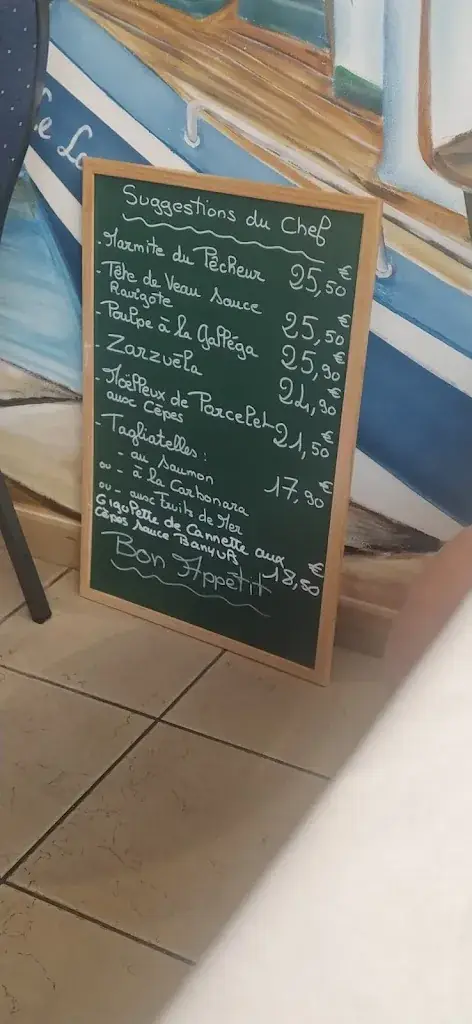 Le
Suggestions du Chef
- Marmite du Pêcheur 25,50€
- Tête de Veau sauce
Ravigote 25,50€
- Poulpe à la Galléga 25,90€
- Zarzuéla 24,90€
- Moëlleux de Porcelet
aux Cèpes 21,50€
- Tagliatelles :
- au Saumon 17,90€
ou - à la Carbonara
ou - aux Fruits de Mer
Gigolette de Cannette aux
Cèpes sauce Banyuls 18,50€
Bon Appétit